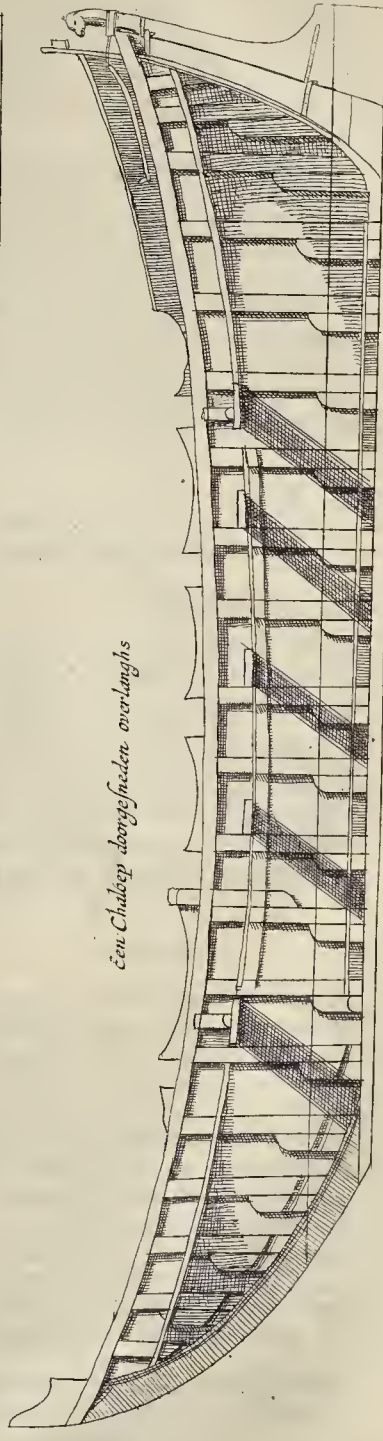 een Chaloep doorgesneden overlanghs